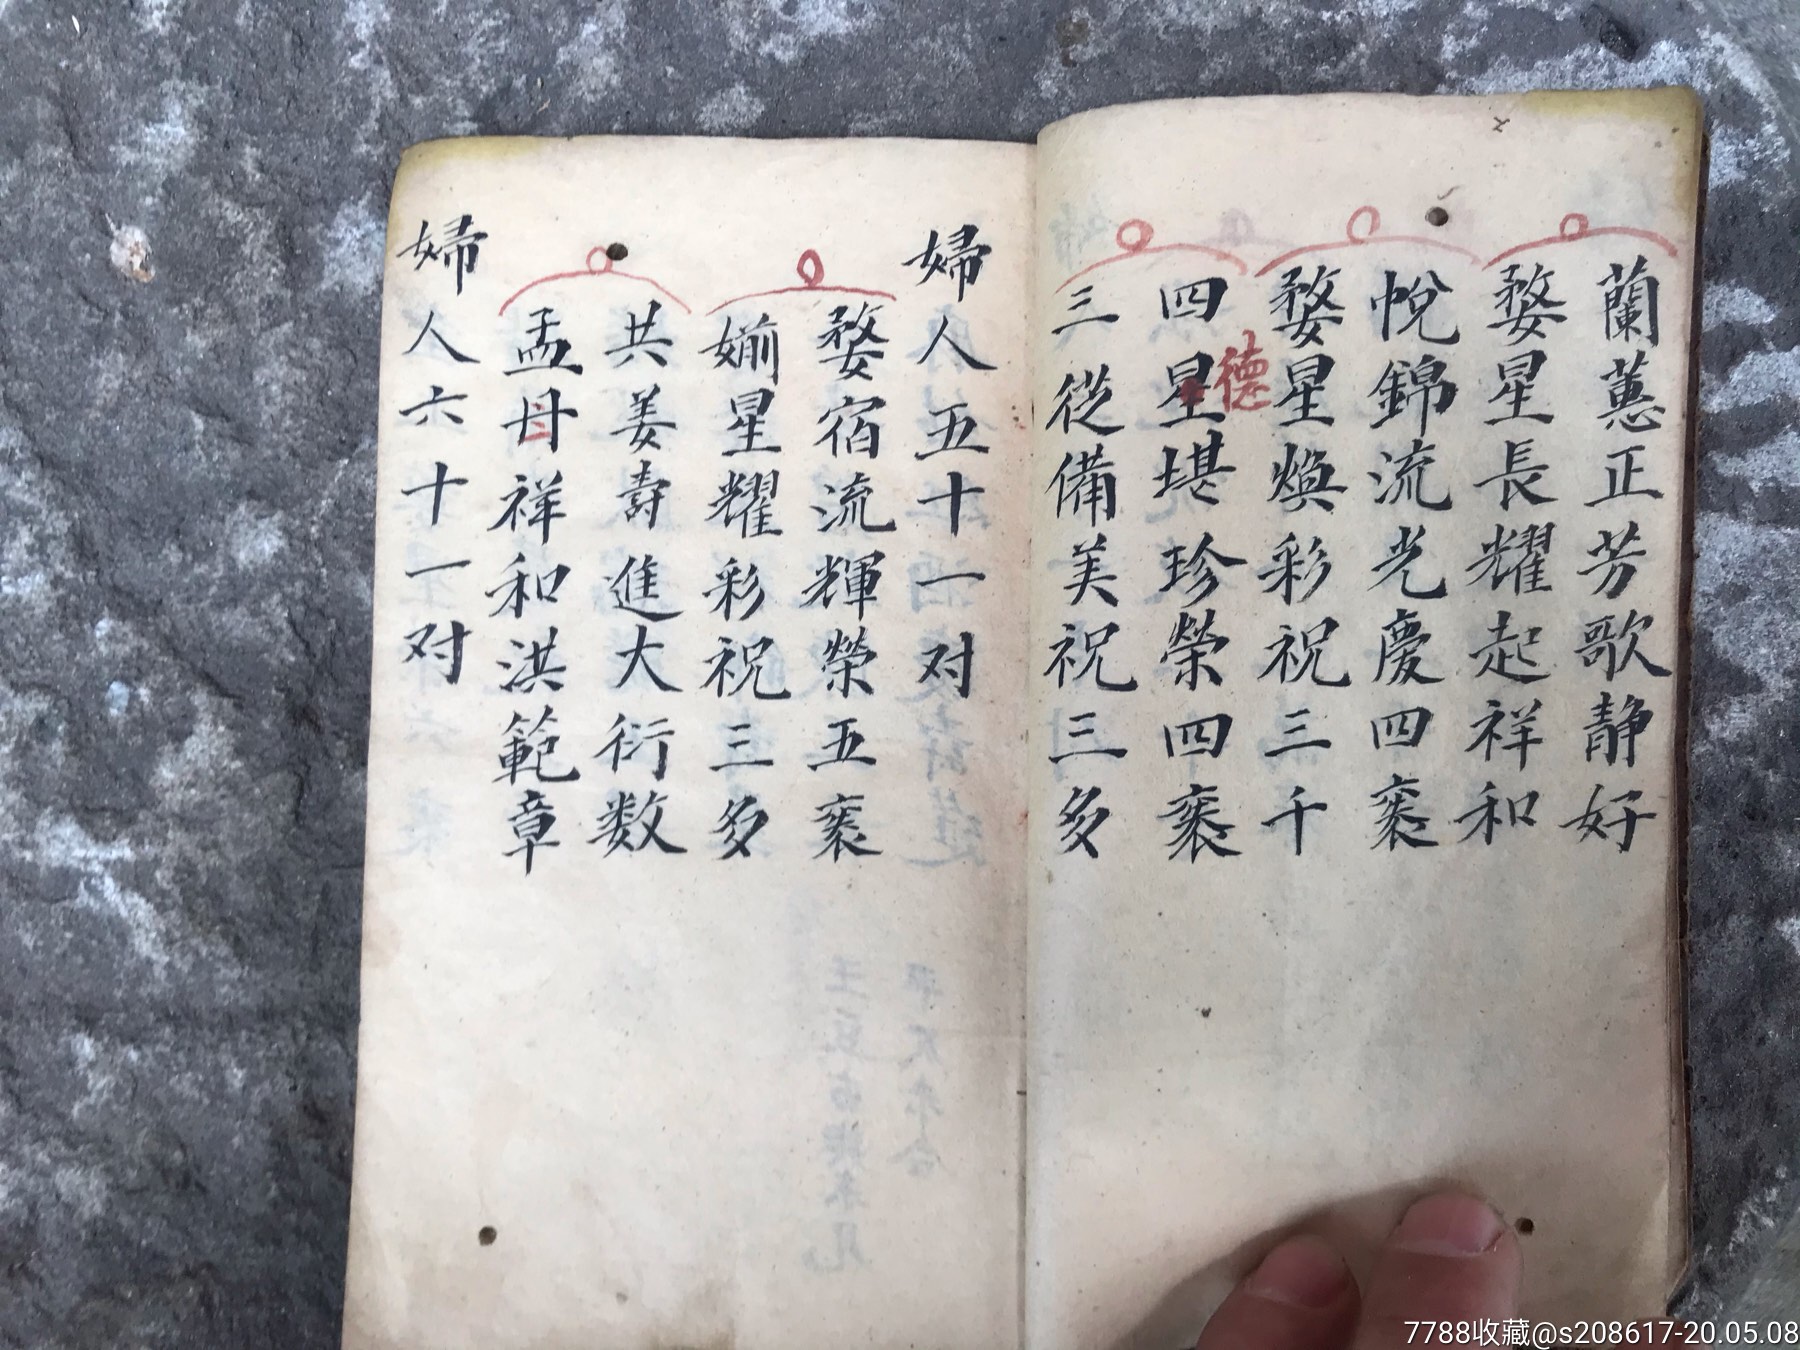 蘭蕙正芳歌靜好
婺星長耀起祥和
帨錦流光慶四袠
婺星煥彩祝三千
四星堪珍榮四袠
德
三從備美祝三多
婦人五十一对
婺宿流輝榮五袠
媊星耀彩祝三多
共姜壽進大衍数
孟母祥和洪範章
婦人六十一对
7788收藏@s208617-20.05.08